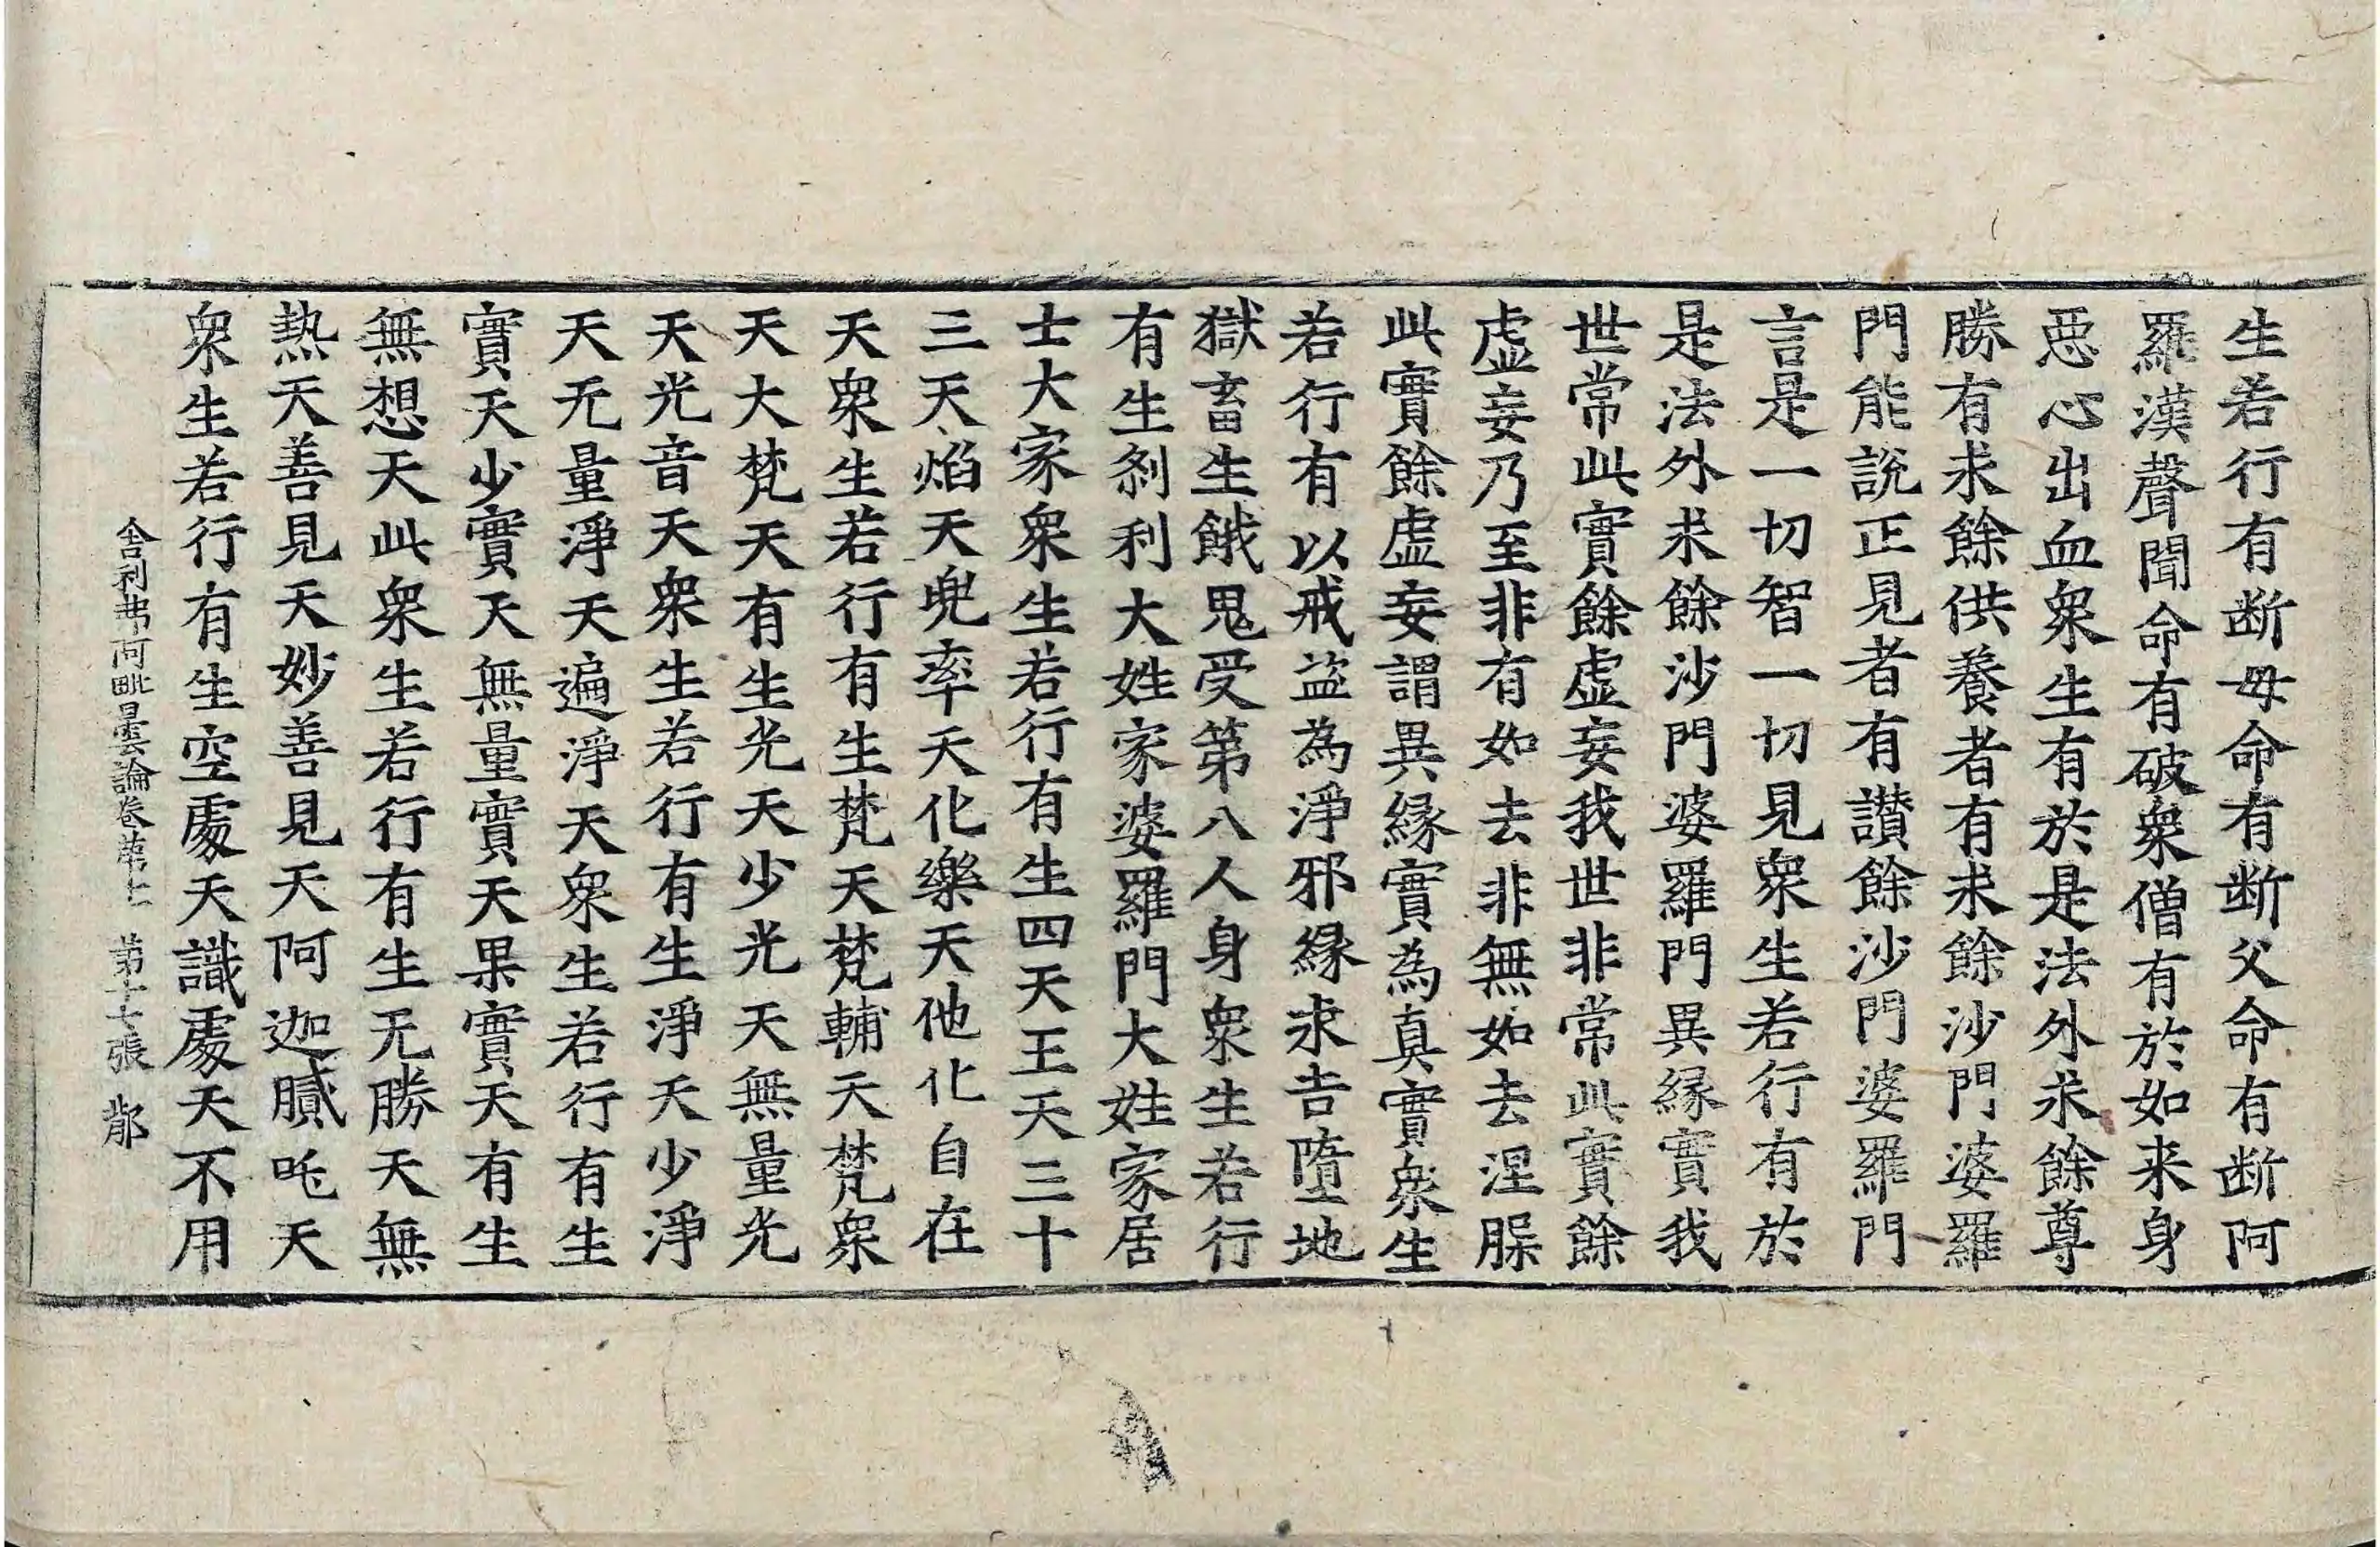 生若行有断母命有断父命有断阿
羅漢聲聞命有破衆僧有於如来身
惡心出血衆生有於是法外求餘尊
勝有求餘供養者有求餘沙門婆羅
門能說正見者有讃餘沙門婆羅門
言是一切智一切見衆生若行有於
是法外求餘沙門婆羅門異縁實我
世常此實餘虛妄我世非常此實餘
虛妄乃至非有如去非無如去涅槃
此實餘虛妄謂異縁實為真實衆生
若行有以戒盜為淨邪縁求吉墮地
獄畜生餓鬼受第八人身衆生若行
有生刹利大姓家婆羅門大姓家居
士大家衆生若行有生四天王天三十
三天焰天兜率天化樂天他化自在
天衆生若行有生梵天梵輔天梵衆
天大梵天有生光天少光天無量光
天光音天衆生若行有生淨天少淨
天无量淨天遍淨天衆生若行有生
實天少實天無量實天果實天有生
無想天此衆生若行有生无勝天無
熱天善見天妙善見天阿迦膩吒天
衆生若行有生空處天識處天不用
舍利弗阿毗曇論卷第七 第十七張 鄁